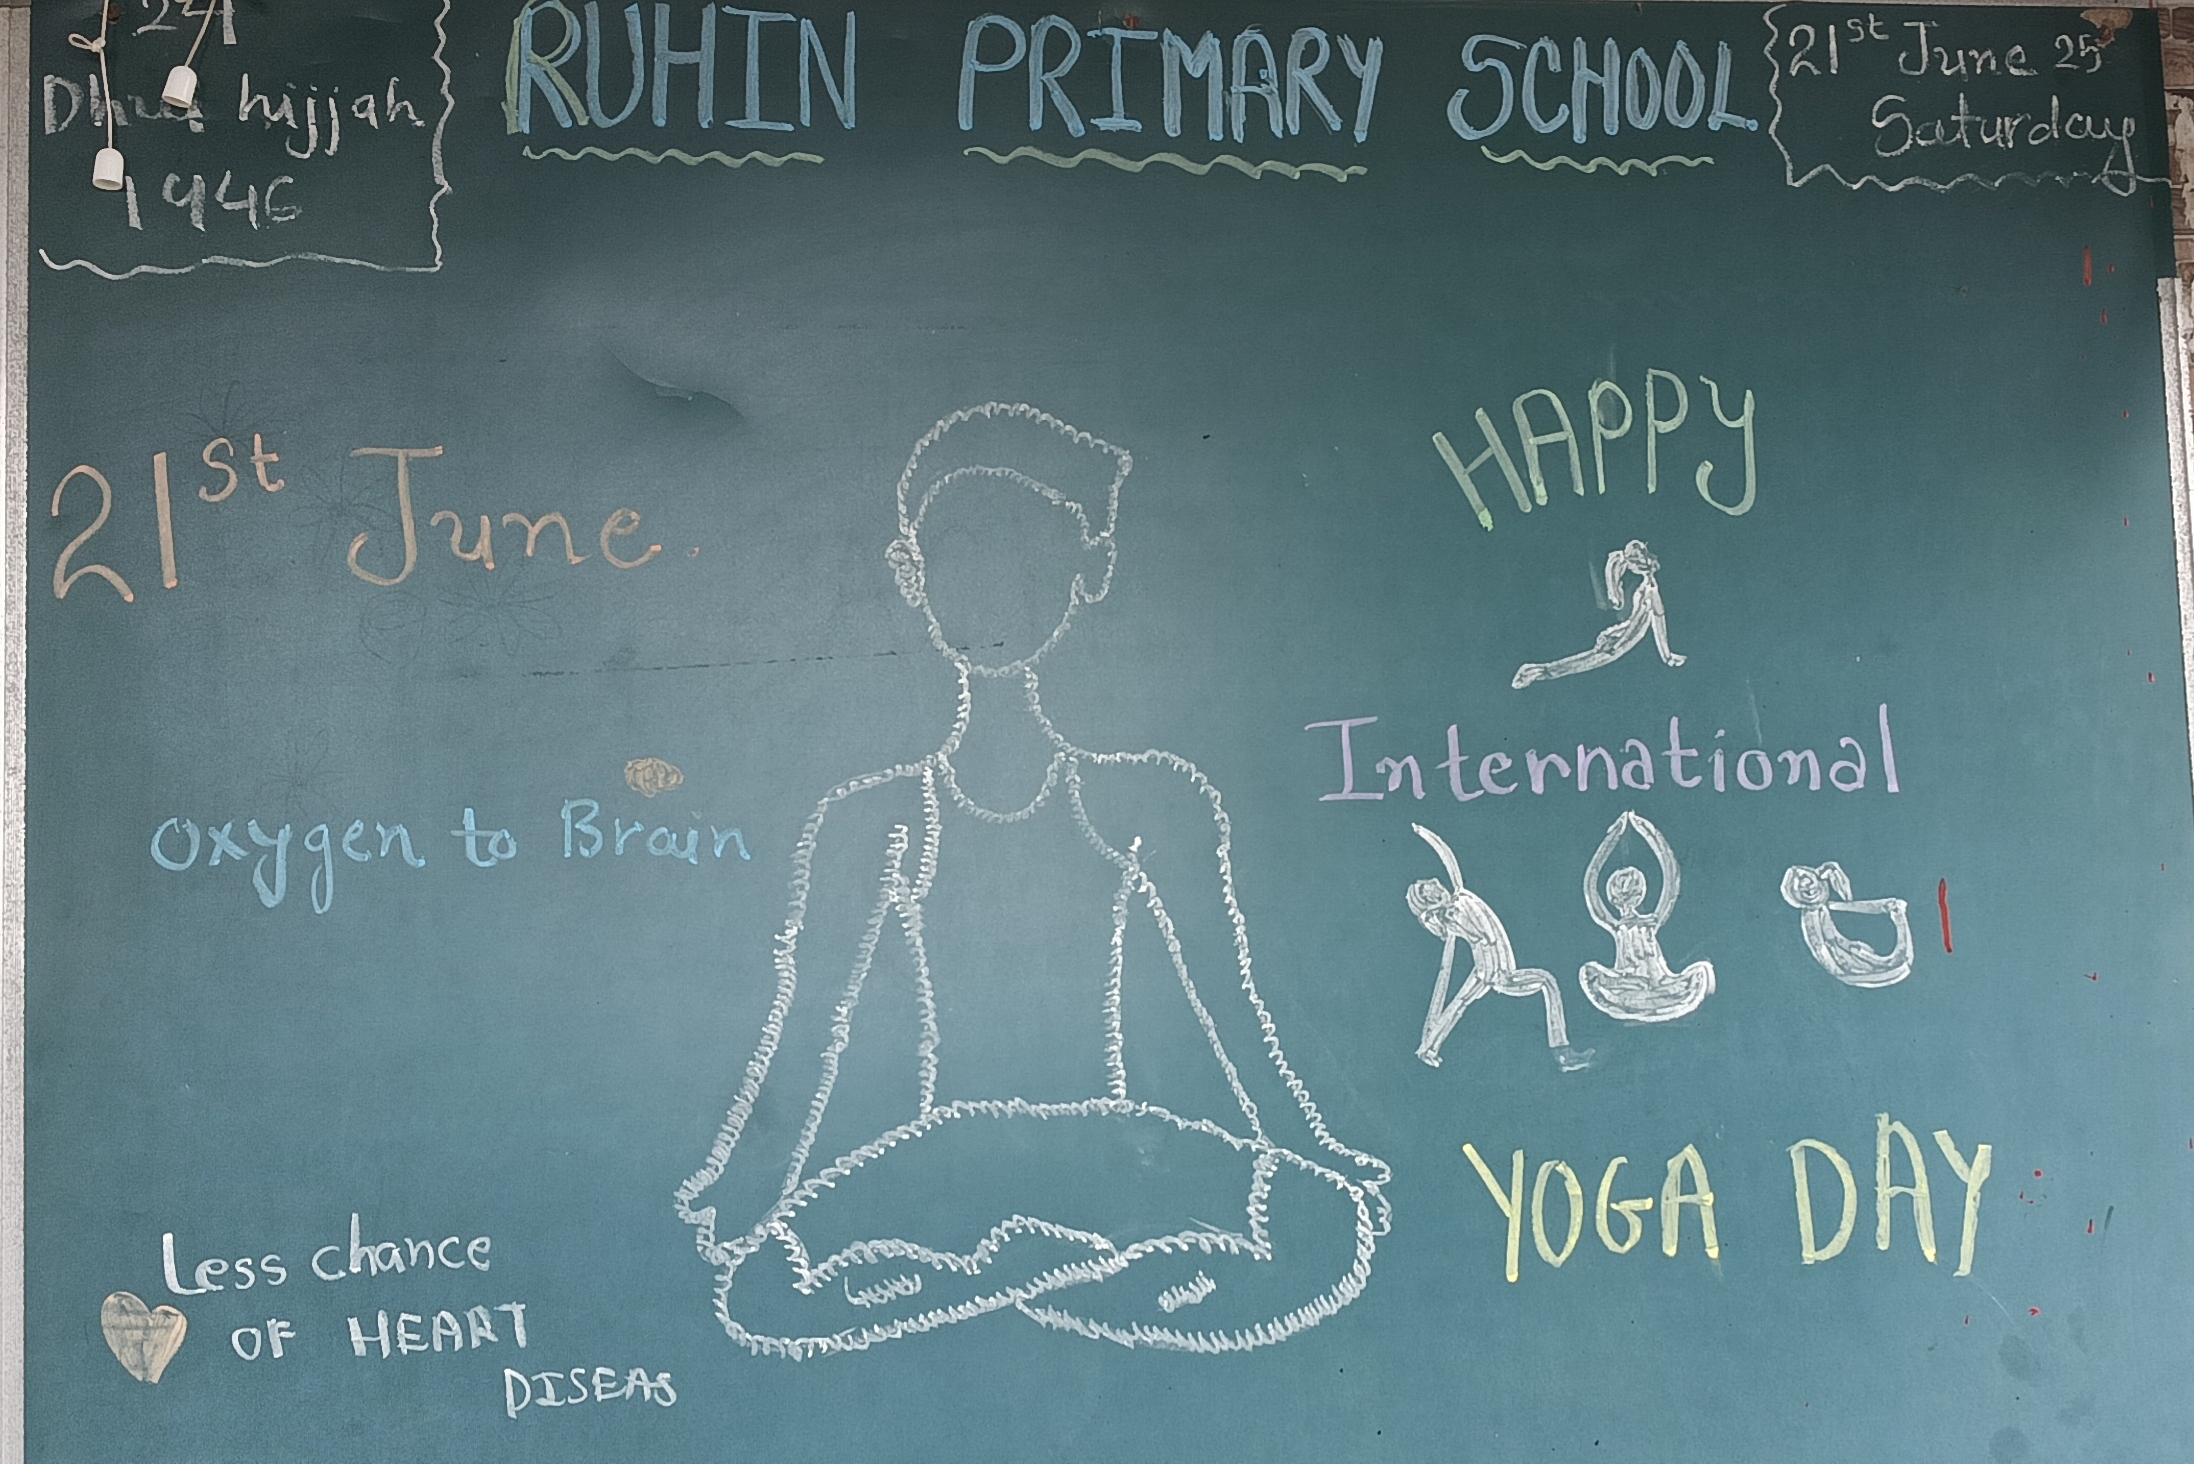 24
Dhul hijjah
1946
RUHIN PRIMARY SCHOOL
21st June 25
Saturday
21st June.
Oxygen to Brain
Less chance
OF HEART
DISEAS
HAPPY
International
YOGA DAY